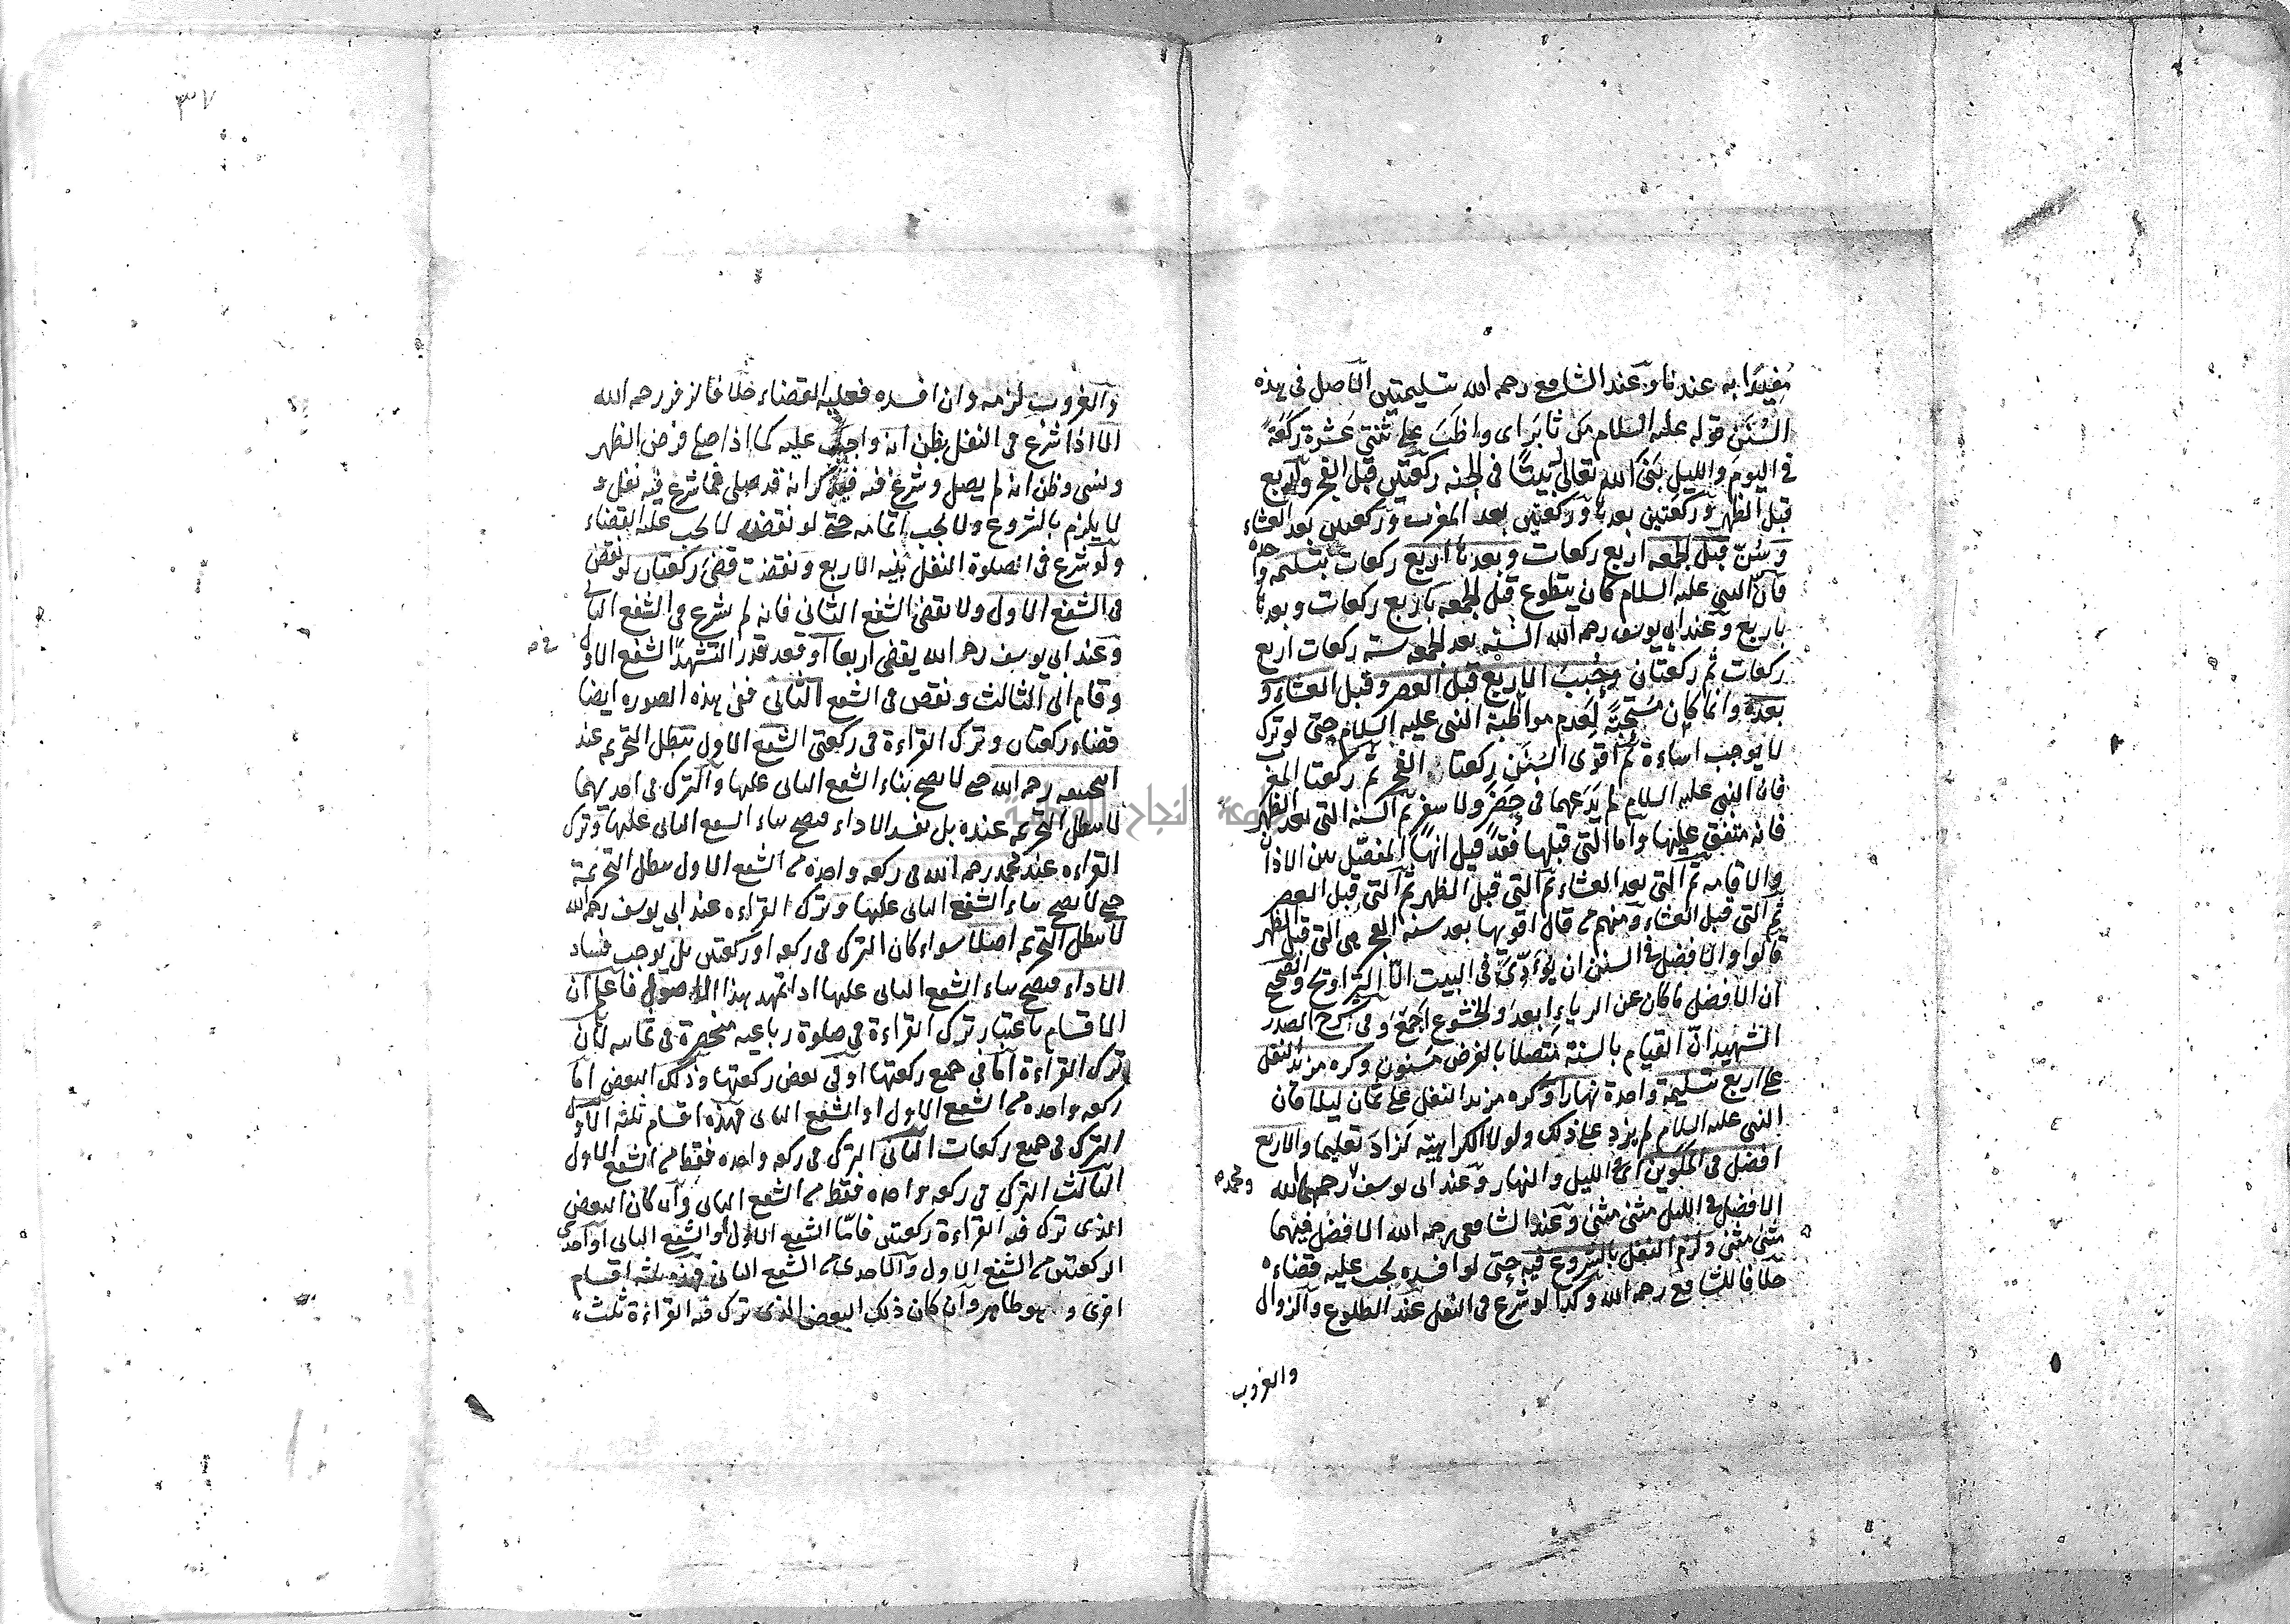 مُعيدًا به عندنا وعند الشافعي رحمه الله تسليمتين الاصل في هذه
السُنَن قوله عليه السلام من ثابَرَ اى واظَبَ على ثنتى عَشرة ركعَةً
في اليوم والليل بَنَى الله تعالى بيتًا في الجنه ركعتين قبل الفجر واربع
قبل الظهر وركعتين بعدها وركعتين بعد المغرب وركعتين بعد العشاء
وسُنّ قبل الجمعه اربع ركعات وبعدها اربع ركعات بتسليمه واحده
فان النبي عليه السلام كان يتطوع قبل الجمعه باربع ركعات وبعدها
باربع وعند ابي يوسف رحمه الله السنه بعد الجمعه ستة ركعات اربع
ركعات ثم ركعتان وحُبِّبَ الاربع قبل العصر وقبل العشاء و
بعده وانما كان مُستحبّةً لعدم مواظبة النبي عليه السلام حتى لو ترك
لا يوجب اساءة ثم اقوى السُنَن ركعتا الفجر ثم ركعتا المغرب
فان النبي عليه السلام لم يَدَعهما في حضر ولا سفر ثم السنه التي بعد الظهر
فانه متفق عليها واما التي قبلها فقد قيل انها المفصّل بين الاذان
والاقامه ثم التي بعد العشاء ثم التي قبل الظهر ثم التي قبل العصر
ثم التي قبل العشاء ومنهم من قال اقويها بعد سنه الفجر هي التي قبل الظهر
قالوا والافضل في السنن ان يُوءَدّى في البيت الا التراويح والصحيح
ان الافضل ما كان عن الرياء ابعد والخشوع اجمَعَ وفي شرح الصدر
الشهيد انّ القيام بالسنة متصلا بالفرض مَسنون وكره مزيد النفل
على اربع بتسليمة واحدة نهارا وكره مزيد النفل على ثمان ليلا فان
النبي عليه السلام لم يزد على ذلك ولولا الكراهية لزادَ تعليما والاربع
افضل في المَلَوين اى الليل والنهار وعند ابي يوسف رحمهما الله
ومحمد صح
الافضل في الليل مثنى مثنى وعند الشافعي رحمه الله الافضل فيهما
مثنى مثنى ولزم النفل بالشروع فيه حتى لو افسده يجب عليه قضاءه
خلافا للشافعي رحمه الله وكذا لو شرع في النفل عند الطلوع والزوال
والغروب
٣٧
والغروب لزمه وان افسده فعليه القضاء خلافا لزفر رحمه الله
الا اذا شرع في النفل بظن انه واجب عليه كما اذا صلى فرض الظهر
ونسى وظن انه لم يصل وشرع فيه فتذكر انه قد صلى فما شرع فيه نفل و
لا يلزم بالشروع ولا يجب اتمامه حتى لو نقضه لا يجب عليه القضاء
ولو شرع في الصلوة النفل بنيه الاربع ونقضت قضى ركعتان لو نقض
في الشفع الاول ولا يقضى الشفع الثاني فانه لم يشرع في الشفع الثاني
وعند ابي يوسف رحمه الله يقضى اربعا او قعد قدر التشهد الشفع الاول
في صح
وقام الى الثالث ونقص في الشفع الثاني ففي هذه الصوره ايضا
قضاء ركعتان وترك القراءة في ركعتى الشفع الاول تبطل التحريمه عند
ابي حنيفه رحمه الله حتى لا يصح بناء الشفع الثاني عليها والترك في احديهما
لا يبطل التحريمه عنده بل يفسد الاداء فيصح بناء الشفع الثاني عليها وترك
القراءه عند محمد رحمه الله في ركعه واحده من الشفع الاول يبطل التحريمة
حتى لا يصح بناء الشفع الثاني عليها وترك القراءه عند ابي يوسف رحمه الله
لا يبطل التحريمه اصلا سواء كان الترك في ركعه او ركعتين بل يوجب فساد
الاداء فيصح بناء الشفع الثاني عليها اذا تمهد هذا الاصول فاعلم ان
الاقسام باعتبار ترك القراءة في صلوة رباعيه منحصرة في ثمانيه لان
ترك القراءة اما في جميع ركعتها او في بعض ركعتها وذلك البعض اما
ركعه واحده من الشفع الاول او الشفع الثاني فهذه اقسام ثلثه الاول
الترك في جميع ركعات الثاني الترك في ركعه واحده فقط من الشفع الاول
الثالث الترك في ركعه واحده فقط من الشفع الثاني وان كان البعض
الذى ترك فيه القراءة ركعتين فامّا الشفع الاول او الشفع الثاني او احدى
الركعتين من الشفع الاول والاحدى من الشفع الثاني فهذه ثلثه اقسام
اخرى وهو ظاهر وان كان ذلك البعض الذى ترك فيه القراءة ثلث